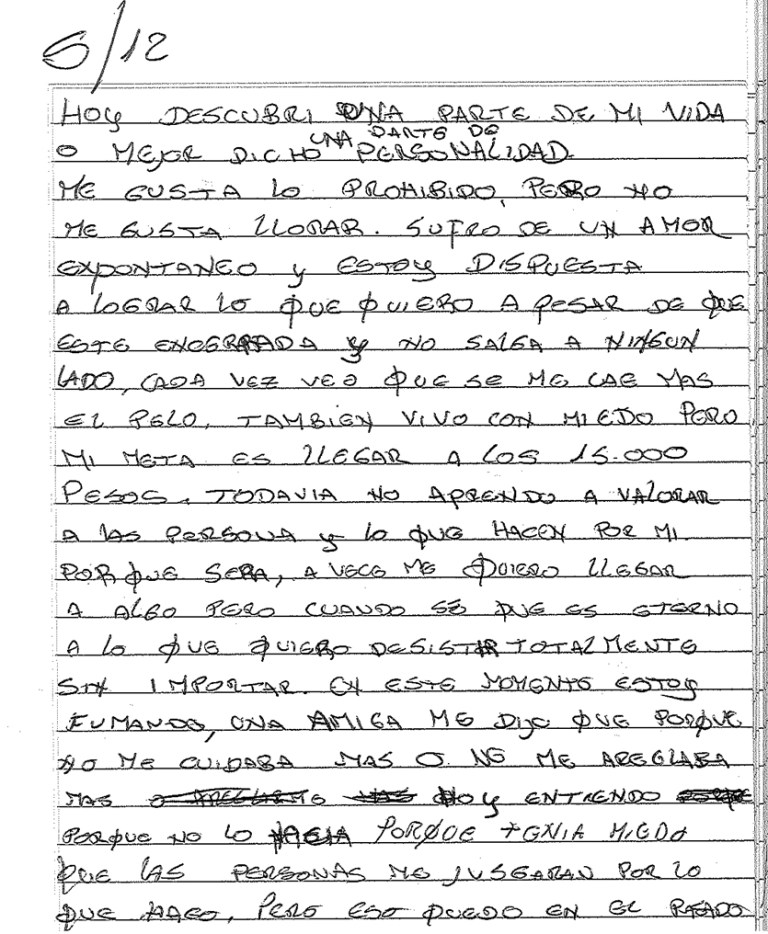 5/12
HOY DESCUBRI UNA PARTE DE MI VIDA
O MEJOR DICHO UNA PARTE DE PERSONALIDAD.
ME GUSTA LO PROHIBIDO, PERO NO
ME GUSTA LLORAR. SUFRO DE UN AMOR
EXPONTANEO Y ESTOY DISPUESTA
A LOGRAR LO QUE QUIERO A PESAR DE QUE
ESTE ENCERRADA Y NO SALGA A NINGUN
LADO, CADA VEZ VEO QUE SE ME CAE MAS
EL PELO, TAMBIEN VIVO CON MIEDO PERO
MI META ES LLEGAR A LOS 15.000
PESOS. TODAVIA NO APRENDO A VALORAR
A LAS PERSONA Y LO QUE HACEN POR MI.
PORQUE SERA, A VECE ME QUIERO LLEGAR
A ALGO PERO CUANDO SÉ QUE ES ETERNO
A LO QUE QUIERO DESISTIR TOTALMENTE
SIN IMPORTAR. EN ESTE MOMENTO ESTOY
FUMANDO, UNA AMIGA ME DIJO QUE PORQUE
NO ME CUIDABA MAS O NO ME AREGLABA
MAS HOY ENTIENDO
PORQUE NO LO HACIA PORQUE TENIA MIEDO
QUE LAS PERSONAS ME JUSGARAN POR LO
QUE HAGO, PERO ESO QUEDO EN EL PASADO